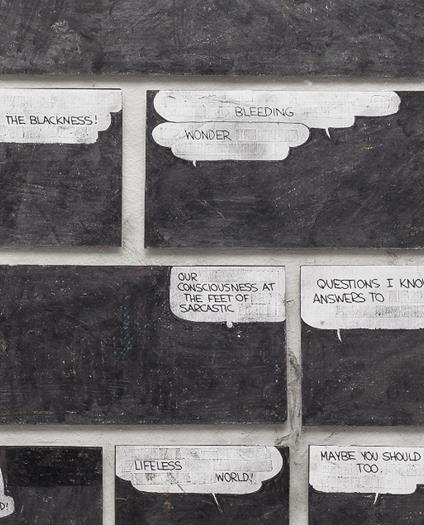 THE BLACKNESS!
BLEEDING
WONDER
OUR
CONSCIOUSNESS AT
THE FEET OF
SARCASTIC
QUESTIONS I KNOW
ANSWERS TO
LIFELESS
WORLD!
MAYBE YOU SHOULD
TOO.
D!